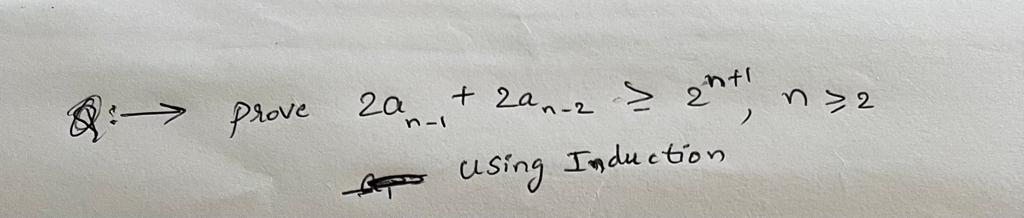 Q:→ prove 2a_{n-1} + 2a_{n-2} ≥ 2^{n+1}, n ≥ 2
using Induction